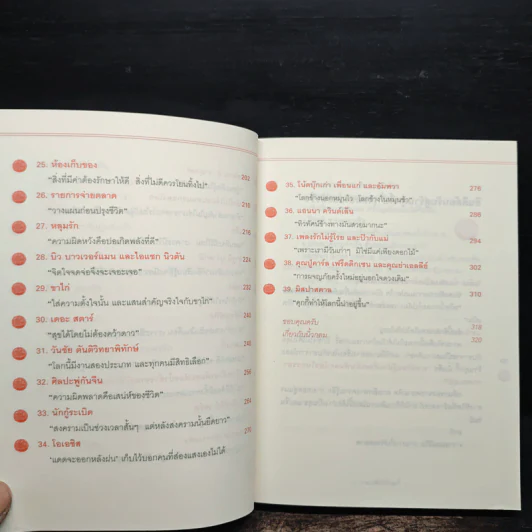 25. ห้องเก็บของ 202
"สิ่งที่มีค่าต้องรักษาให้ดี สิ่งที่ไม่ดีควรโยนทิ้งไป"
26. รายการจ่ายตลาด
"วางแผนก่อนปรุงชีวิต"
27. หลุมรัก
"ความผิดหวังคือบ่อเกิดพลังที่ดี"
28. นิว บาวเวอร์แมน และไอแซก นิวตัน 224
"จิตใจจดจ่อจึงจะเจอะเจอ"
29. ขาไก่
"ใส่ความตั้งใจนั้น และแสนสำคัญจริงใจกับขาไก่"
30. เดอะ สตาร์
"สุขได้โดยไม่ต้องคว้าดาว"
31. วันชัย ตันติวิทยาพิทักษ์
"โลกนี้มีงานสองประเภท และทุกคนมีสิทธิเลือก"
32. ศิลปะพู่กันจีน
"ความผิดพลาดคือเสน่ห์ของชีวิต"
33. นักกู้ระเบิด
"สงครามเป็นช่วงเวลาสั้นๆ แต่หลังสงครามนั้นยืดยาว"
34. โอเอซิส 270
"แดดจะออกหลังฝน" เก็บไว้บอกคนที่ส่องแสงเองไม่ได้
35. โน้ตบุ๊กเก่า เพื่อนแก่ และอัมพวา 276
"โลกข้างนอกหมุนไว โลกข้างในหมุนช้า"
36. แอนนา ควินด์เลิน 288
"ทิวทัศน์ข้างทางมันสวยมากนะ"
37. เพลงรักไม่รู้โรย และป๋ากับแม่ 294
"เพราะเรามีวันเก่าๆ มิใช่มีแค่เพียงดอกไม้"
38. คุณปู่คาร์ล เฟร็ดดิกเซน และคุณย่าเอลลี่ 302
"การผจญภัยครั้งใหม่อยู่นอกใจดวงเดิม"
39. มิสปาสคาล 310
"คุกกี้ทำให้โลกนี้น่าอยู่ขึ้น"
ขอบคุณครับ 318
เกี่ยวกับนิ้วกลม 320